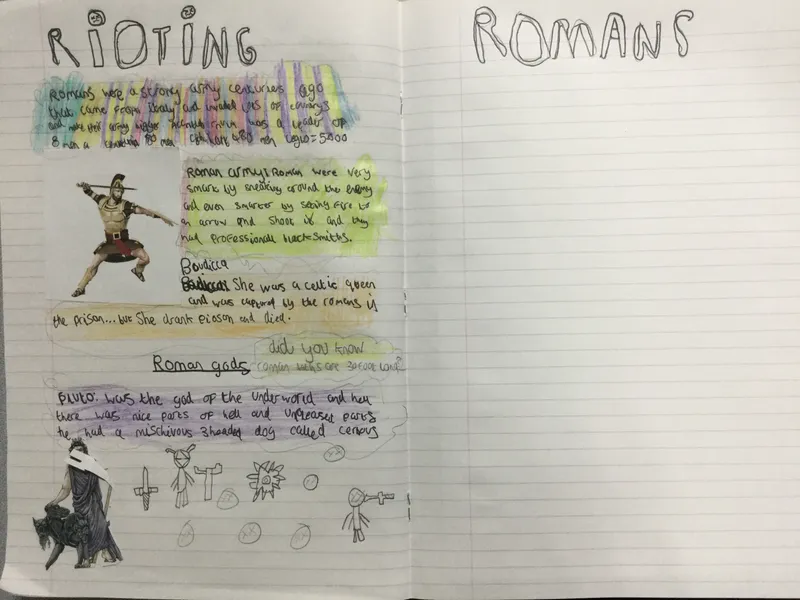 RiOTiNG
ROMANS
Romans were a strong army centuries ago
that came from itealy and invaded lots of
and make their army bigger was a leader of
8 men a 80 men 480 men legio=5000
Roman army: Roman were very
smart by sneaking around the enemy
and even smarter by seting fire to
an arrow and shoot it and they
had professional blacksmiths.
Boudicca
She was a celtic queen
and was captured by the romans is
the prison... but she drank pioson and died.
did you know
Roman gods
roman are 30 foot long?
Pluto: was the god of the underworld and hell
there was nice parts of hell and parts
he had a mischivous 3headed dog called